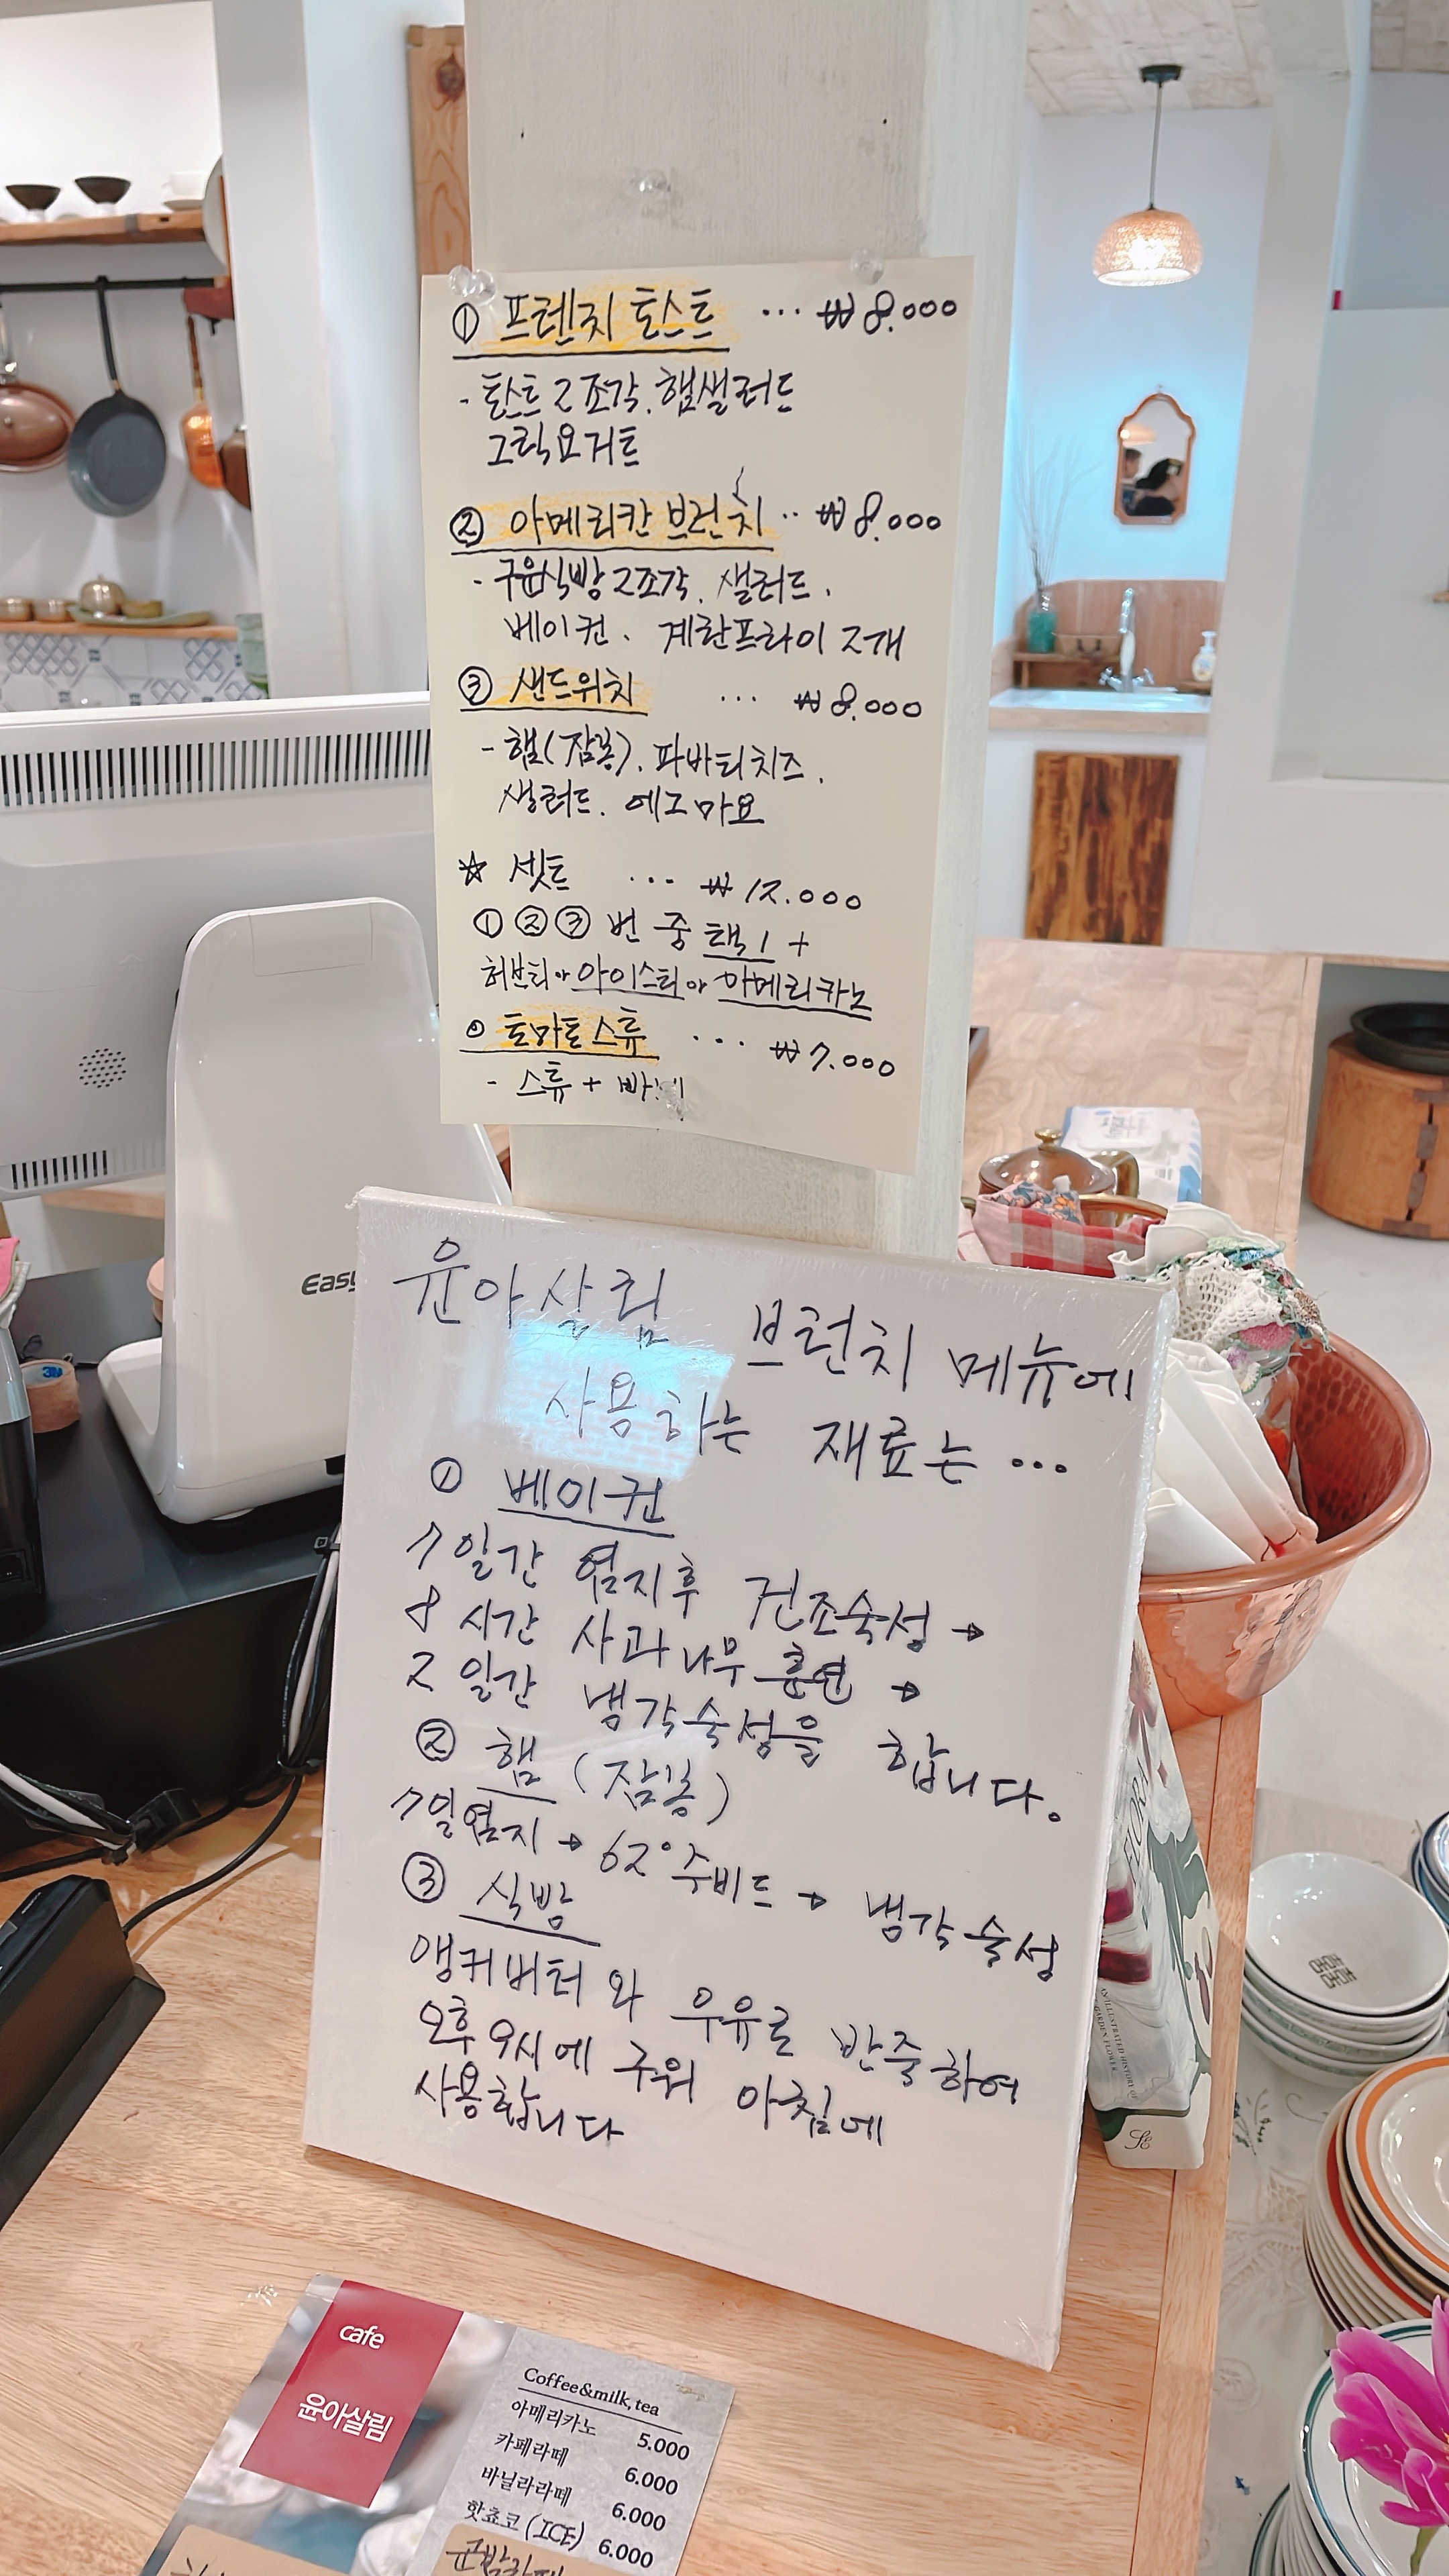 ① 프렌치 토스트 ... ₩8.000
- 토스트 2조각. 햄샐러드
그릭요거트
② 아메리칸 브런치 .. ₩8.000
- 구운식빵 2조각. 샐러드.
베이컨. 계란프라이 2개
③ 샌드위치 ... ₩8.000
- 햄(잠봉). 파바티치즈.
샐러드. 에그마요
☆ 셋트 ... ₩12.000
①②③ 번 중 택1 +
허브티or아이스티or아메리카노
토마토스튜 ... ₩7.000
- 스튜 +
윤아살림 브런치 메뉴에
사용하는 재료는...
① 베이컨
7일간 염지후 건조숙성 →
8시간 사과나무 훈연 →
2일간 냉각숙성을 합니다.
② 햄 (잠봉)
7일염지 → 62° 수비드 → 냉각숙성
③ 식빵
앵커버터와 우유로 반죽하여
오후 9시에 구워 아침에
사용합니다
Easy
3M
FLORA
AN ILLUSTRATED HISTORY OF
THE GARDEN FLOWER
cafe
윤아살림
Coffee&milk, tea
아메리카노 5.000
카페라떼 6.000
바닐라라떼 6.000
핫쵸코 (ICE) 6.000